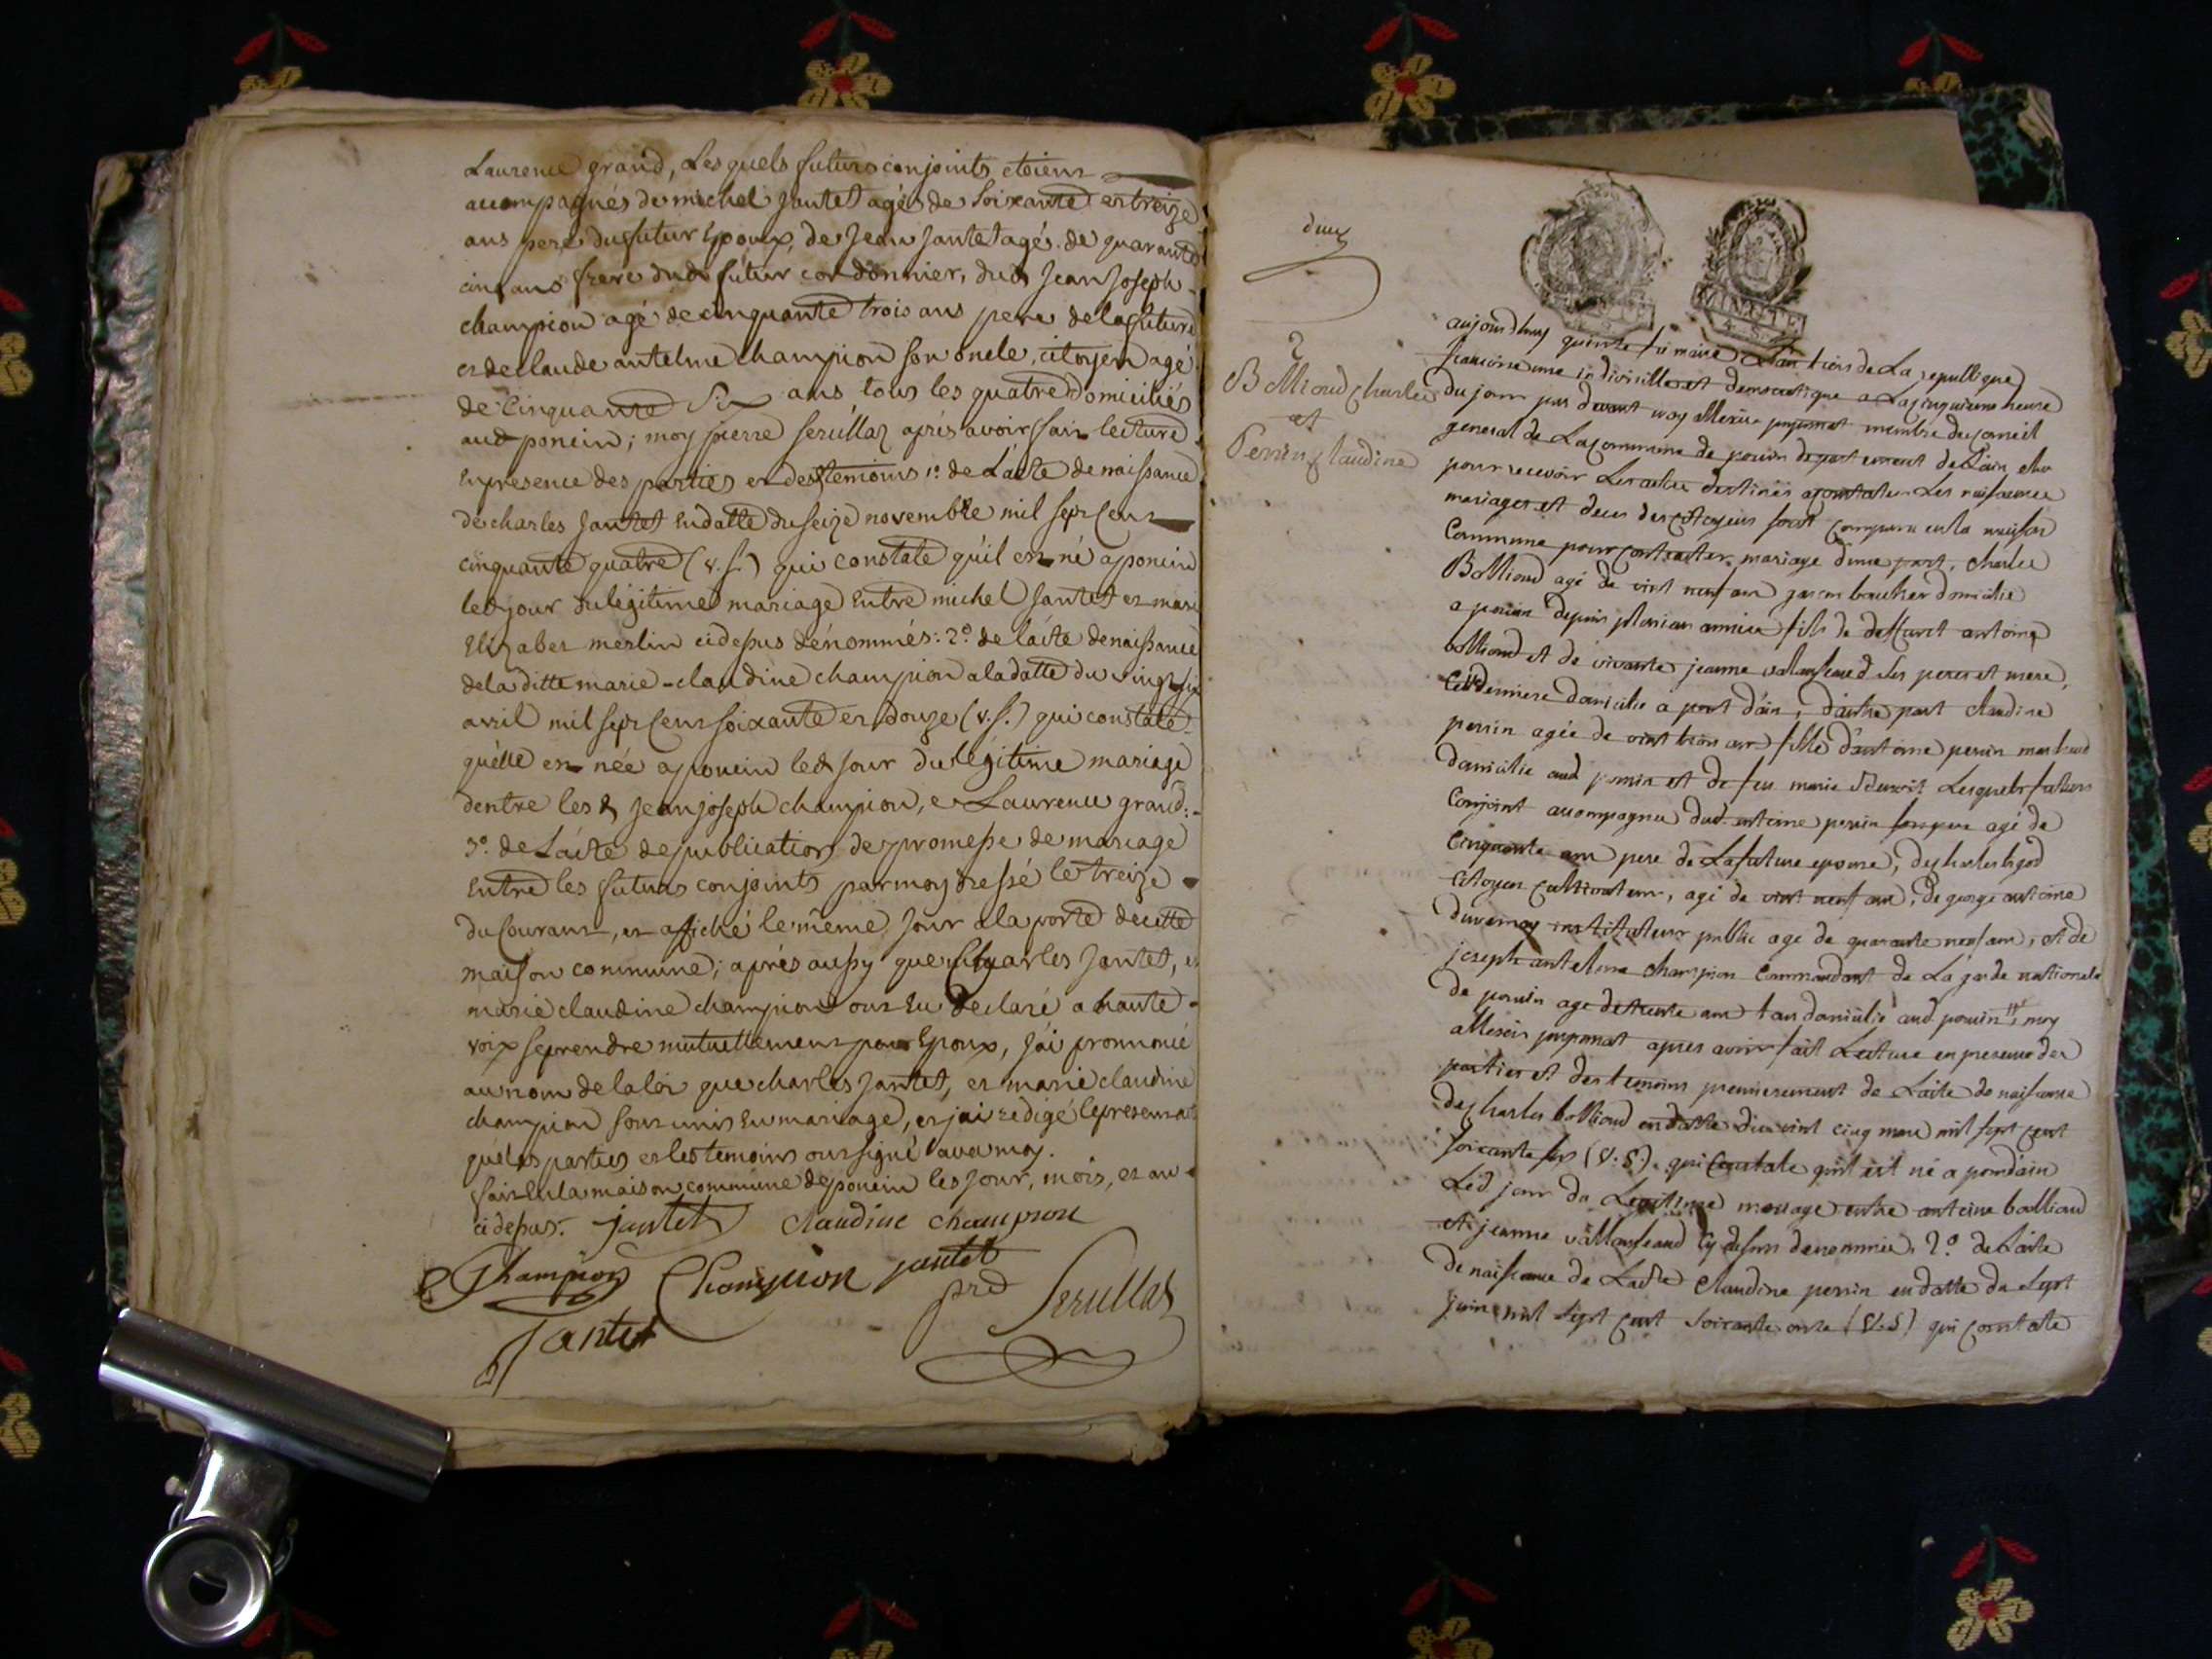 Laurence grand, Lesquels futurs conjoints etoient
accompagnés de michel jantet agé de soixante et treize
ans pere du futur Epoux, de Jean jantet agé de quarante
cinq ans frere dud. futur cordonnier, dud. Jean Joseph
champion agé de cinquante trois ans pere de la future
et de claude antelme champion son oncle, citoyen agé
de Cinquante Six ans tous les quatre domiciliés
aud. poncin; moy pierre serullaz aprés avoir fait lecture
En presence des parties et des temoins 1º. de L'acte de naissance
de charles jantet En datte du seize novembre mil sept cent
cinquante quatre (v.s.) qui constate qu'il est né a poncin
led. jour du légitime mariage Entre michel jantet et marie
Elizabet merlin cidessus dénommés: 2º. de l'acte de naissance
de la ditte marie-claudine champion a la datte du vingt six
avril mil sept cent soixante et douze (v.s.) qui constate
qu'elle est née a poncin led. jour du légitime mariage
d'entre les d. jean joseph champion, et Laurence grand:
3º. de L'acte de publication de promesse de mariage
Entre les futurs conjoints par moy dressé le treize
du Courant, et affiché le même jour a la porte de cette
maison commune; aprés aussy que Charles jantet, et
marie claudine champion ont Eu declaré a haute
voix se prendre mutuellement pour Epoux, j'ai prononcé
au nom de la loi que charles jantet, et marie claudine
champion sont unis En mariage, et j'ai redigé le present acte
que les parties et les temoins ont signé avec moy.
fait En la maison commune de poncin les jour, mois, et an
cidessus. jantet claudine champion
Champion Champion jantet
prd Serullaz
Jantet
deux
2
Bollioud Charles
et
Perrin Claudine
MINUTE
aujourdhuy quinze frimaire L'an trois de La republique
francoise une indivisible et democratique a La cinquieme heure
du jour par devant moy membre du conseil
general de La commune de poncin departement de L'ain elu
pour recevoir Les actes destinés a constater Les naissances
mariages et deces des citoyens sont comparu en la maison
Commune pour contracter mariage d'une part, charles
Bollioud agé de vint neuf ans garcon boucher domicilié
a poncin depuis plusieurs années fils de deffunt antoine
bollioud et de vivante jeanne ses peres et mere,
Cette derniere domicilie a pont d'ain, d'autre part claudine
perrin agée de vint trois ans fille d'antoine perrin marchand
domicilie aud. poncin et de feu marie Lesquels futurs
Conjoint accompagnes dud. antoine perrin agé de
Cinquante ans pere de La future epouse, de charles
Citoyen cultivateur, agé de vint neuf ans, de george antoine
duvernay instituteur public agé de quarante neuf ans, et de
joseph antelme champion Commandant de La garde nationale
de poncin agé de trente ans tous domicilié aud. poncin, moy
apres avoir fait Lecture en presence des
parties et des temoins premierement de L'acte de naissance
de Charles bollioud en datte du vint cinq mars mil sept cent
soixante six (V.S.) qui Constate qu'il est né a pondain
Led. jour du Legitime mariage entre antoine bollioud
et jeanne cy dessus denommée, 2º. de L'acte
de naissance de Ladte Claudine perrin en datte du sept
juin mil sept cent soixante onze (V.S) qui constate